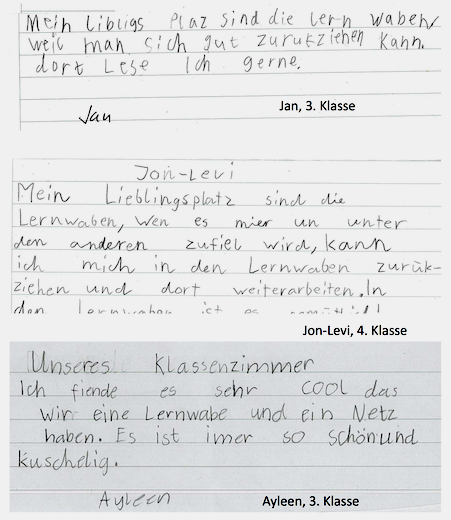 Mein libligs Plaz sind die lern waben,
weil man sich gut zurukziehen kann.
dort Lese Ich gerne.
Jan
Jan, 3. Klasse
Jon-Levi
Mein Lieblingsplatz sind die
Lernwaben, wen es mier un unter
den anderen zufiel wird, kann
ich mich in den Lernwaben zurük-
ziehen und dort weiterarbeiten. In
den Lernwaben ist es gemütlich!
Jon-Levi, 4. Klasse
Unseres Klassenzimmer
Ich fiende es sehr COOL das
wir eine Lernwabe und ein Netz
haben. Es ist imer so schön und
kuschelig.
Ayleen
Ayleen, 3. Klasse